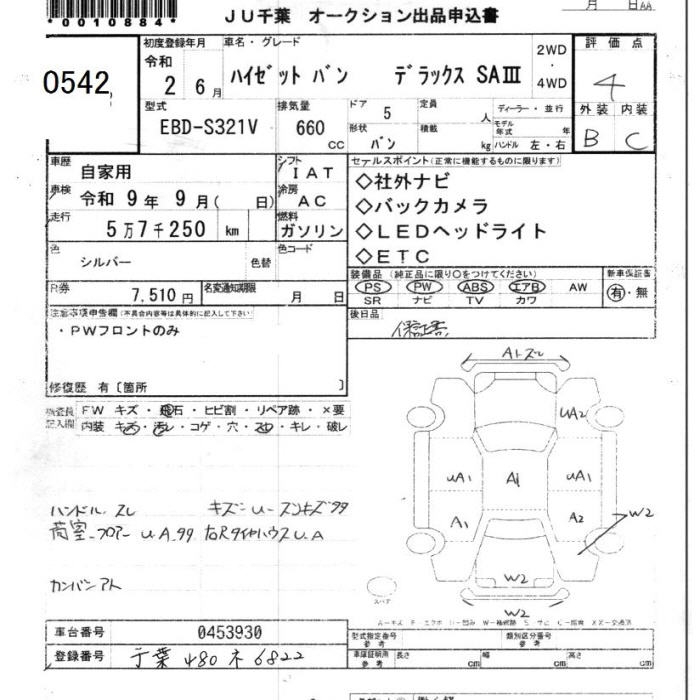 *0010884*
JU千葉 オークション出品申込書
月 日AA
0542
初度登録年月 令和 2 6月
車名・グレード ハイゼット バン デラックス SAⅢ
2WD・4WD
評価点 4
外装 内装
B C
型式 EBD-S321V
排気量 660 CC
ドア 5
形状 バン
定員 人
積載 kg
ディーラー・並行
モデル年式 年
ハンドル 左・右
車歴 自家用
シフト IAT
車検 令和 9年 9月( 日)
冷房 AC
走行 5万7千250 km
燃料 ガソリン
色 シルバー 色替
色コード
R券 7,510円
名変通知期限 月 日
セールスポイント(正常に機能するものに限ります)
◇社外ナビ
◇バックカメラ
◇LEDヘッドライト
◇ETC
装備品(純正品に限り○をつけてください)
PS PW ABS エアB AW
SR ナビ TV カワ
新車保証書
有・無
後日品 保証書
注意事項申告欄(不具合内容等は具体的に記入して下さい)
・PWフロントのみ
修復歴 有〔箇所 〕
検査員記入欄
FW キズ・飛石・ヒビ割・リペア跡・×要
内装 キズ・汚レ・コゲ・穴・スレ・キレ・破レ
ハンドル スレ
荷室フロアー U.A.99 右Rタイヤハウス U.A
カンバンアト
Aトズレ
UA2
UA1 A1 UA1
A1 A2 W2
W2
W2
スペア
車台番号 0453930
登録番号 千葉 480 ネ 6822
型式指定番号 参考
類別区分番号 参考
車庫証明用 参考 長さ cm 幅 cm 高さ cm